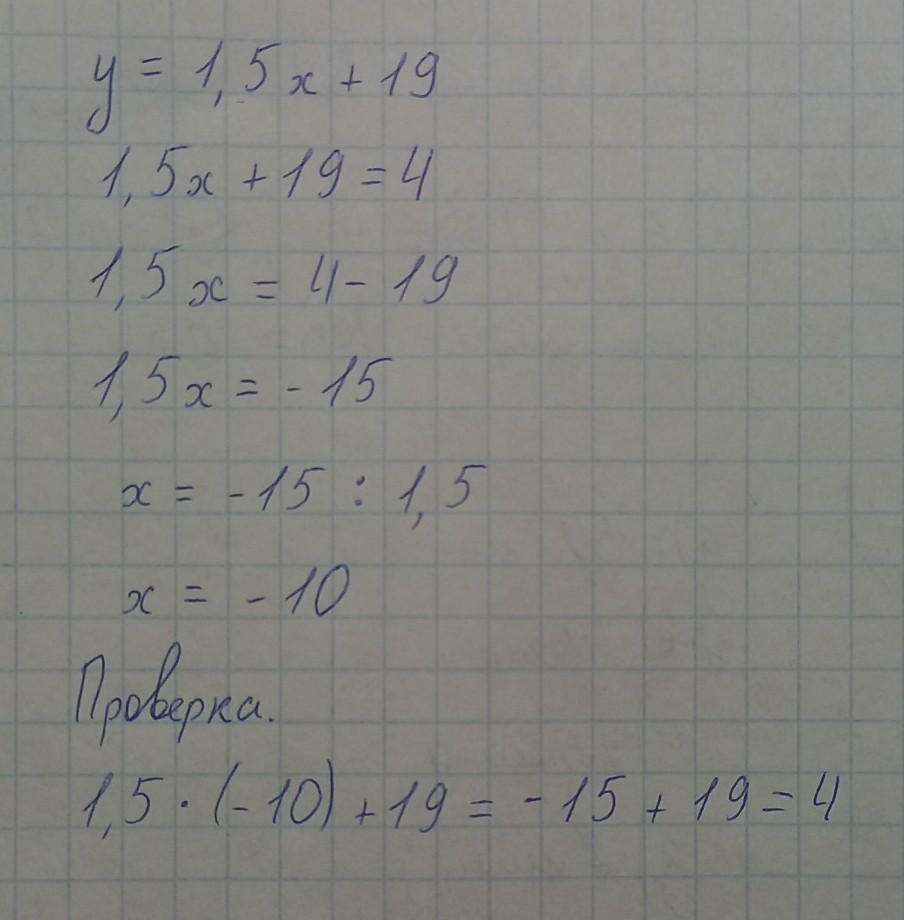 y = 1,5x + 19
1,5x + 19 = 4
1,5x = 4 - 19
1,5x = - 15
x = -15 : 1,5
x = - 10
Проверка.
1,5 · (-10) + 19 = - 15 + 19 = 4